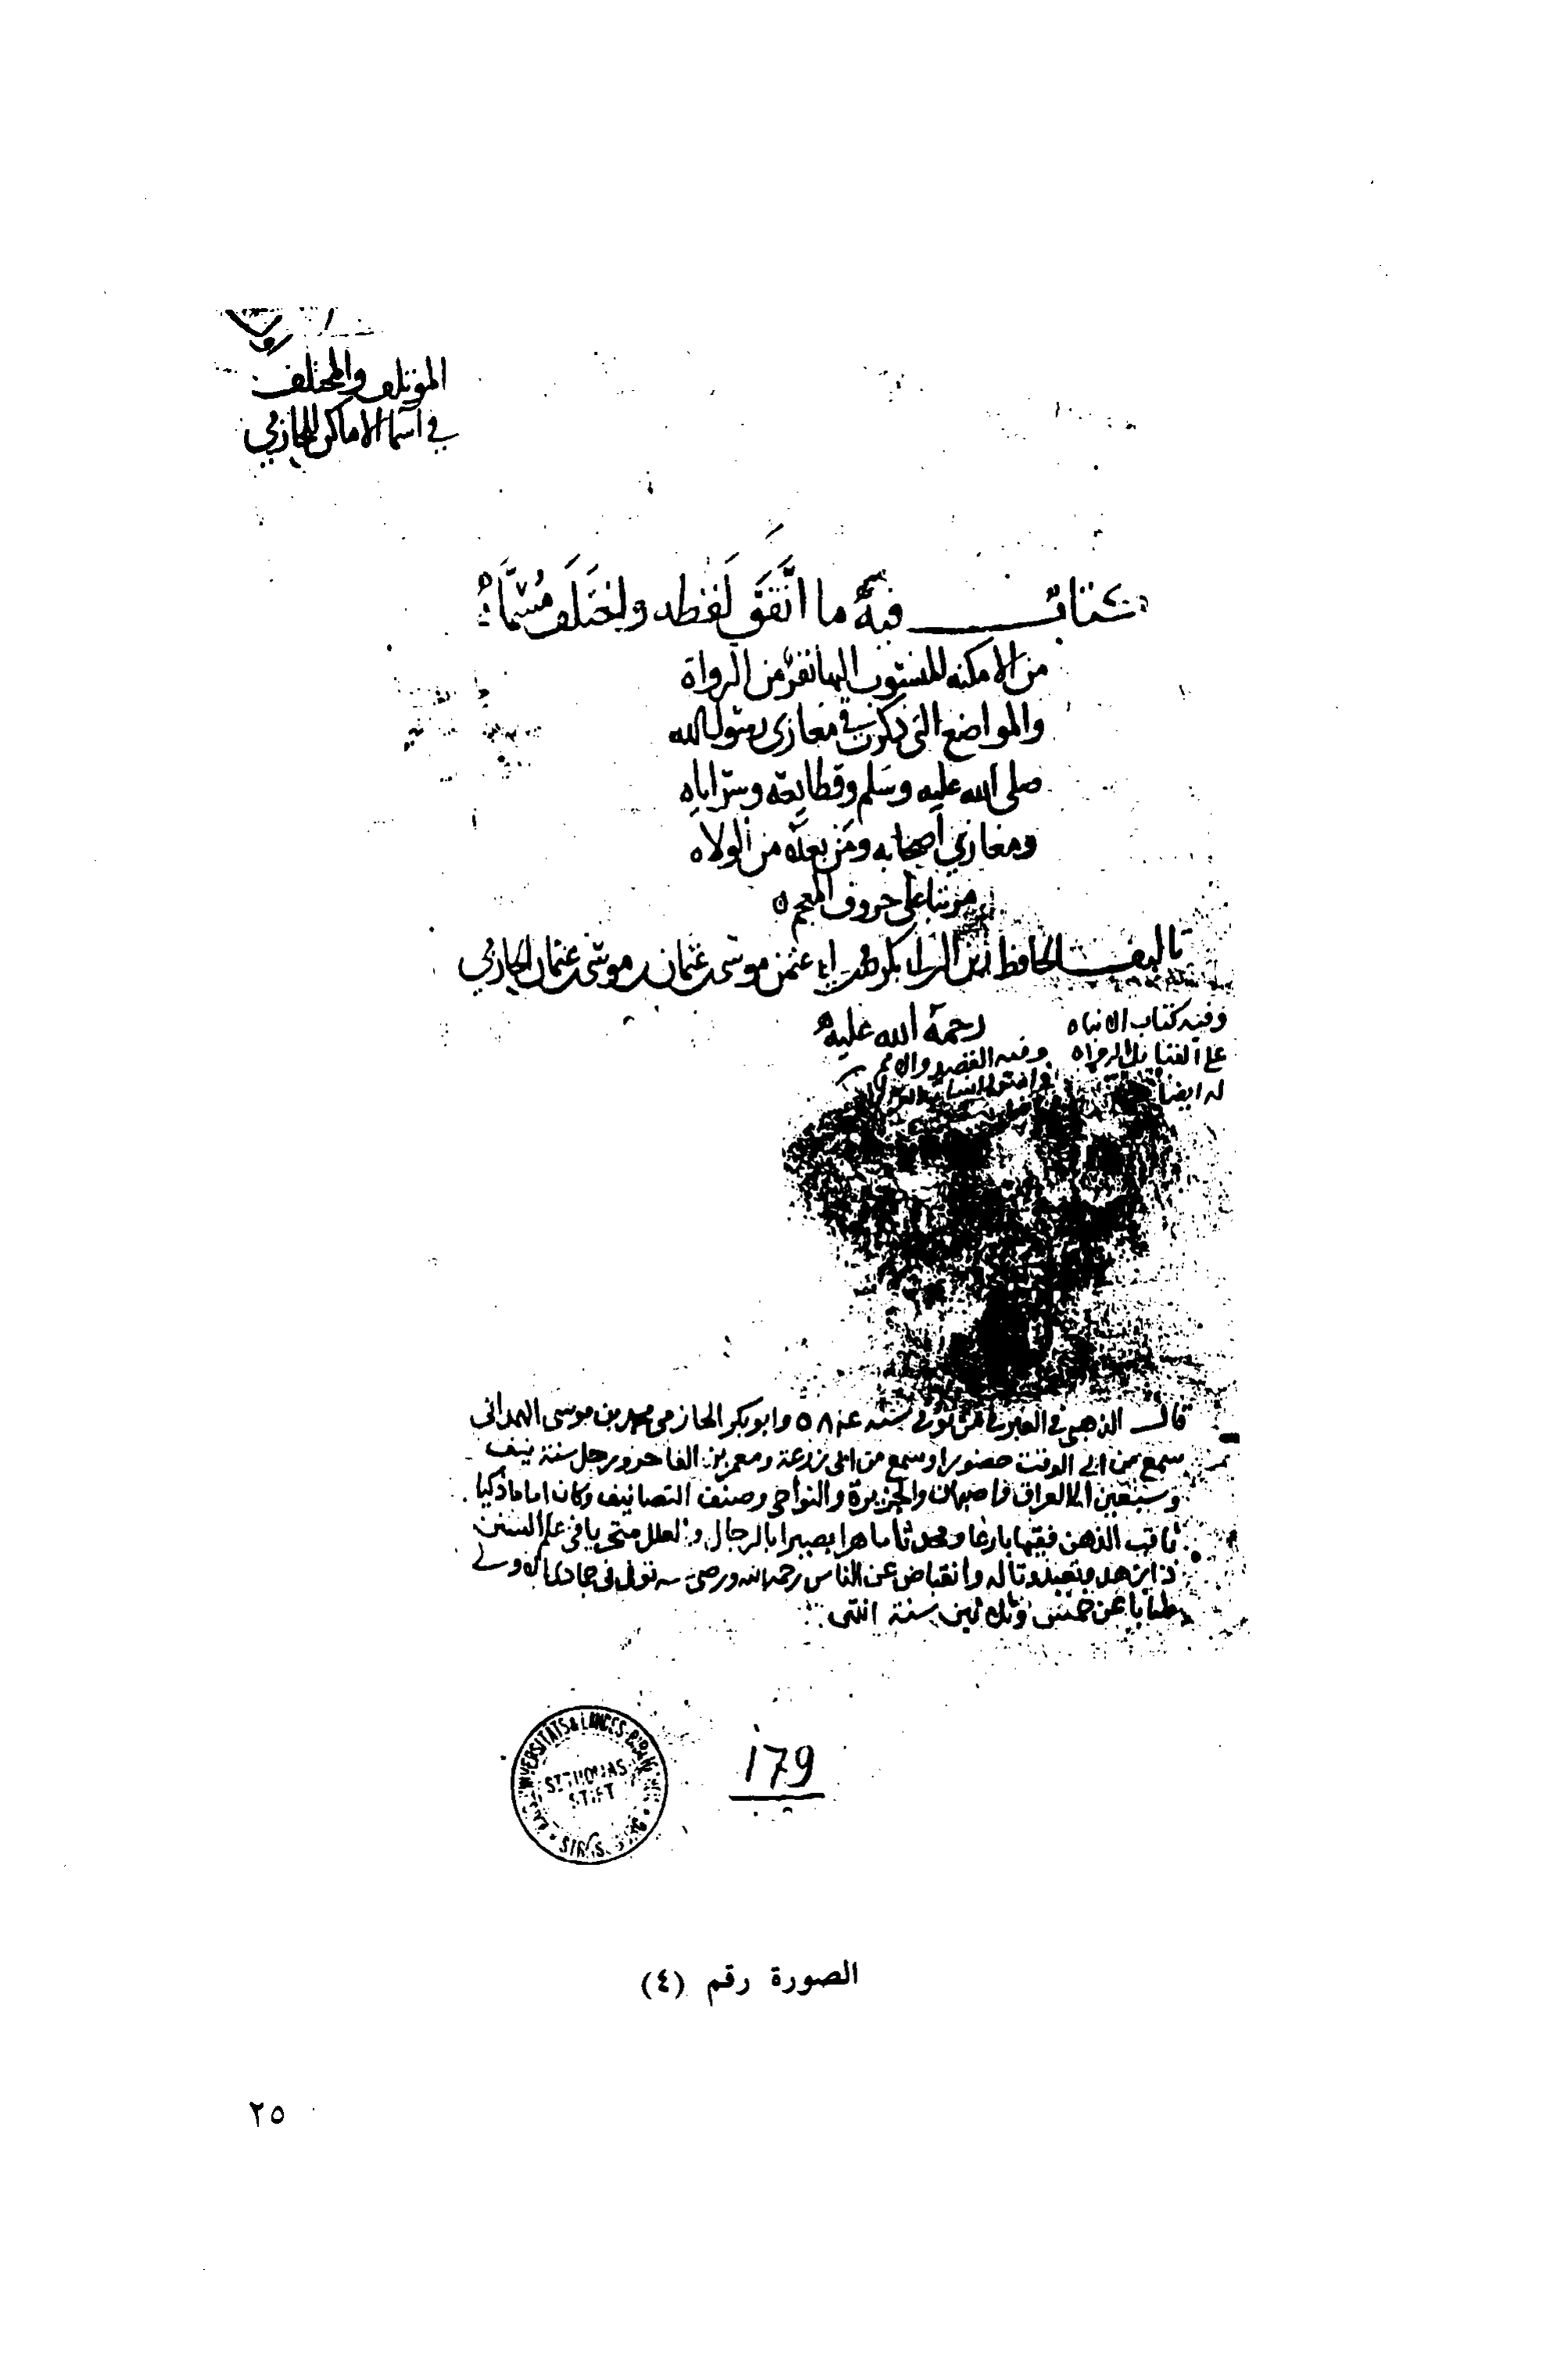 المؤتلف والمختلف
في اسما الاماكن للحازمي
كتاب فيه ما اتَّفَقَ لَفظه واختَلَفَ مُسَمَّاهُ
من الامكنه المنسوب اليها نفر من الرواة
والمواضع التي ذكرت في مغازي رسول الله
صلى الله عليه وسلم وقطايعه وسراياه
ومغازي اصحابه ومن بعده من الولاه
مرتبا على حروف المعجم
تاليف الحافظ زين الدين ابي بكر محمد بن ابي عثمن موسى بن عثمان بن موسى بن عثمان الحازمي
رحمة الله عليه
وفيه كتاب الانباه
على القبايل الرواه
وفيه القصد والامم
له ايضا
قال الذهبي في العبر فى من توفى سنة وابو بكر الحازمي محمد بن موسى الهمداني
سمع من ابي الوقت حضورا وسمع من ابي زرعة ومعمر بن الفاخر ورحل سنة نيف
وسبعين الى العراق واصبهان والجزيرة والنواحي وصنف التصانيف وكان اماما ذكيا
ثاقب الذهن فقيها بارعا ومحدثا ماهرا بصيرا بالرجال والعلل متحريا في علم السنن
ذا زهد وتعبد وتاله وانقباض عن الناس رحمه الله ورضى توفى في جمادى الاولى
شابا عن خمس وثلاثين سنة انتهى
179
ST THOMAS
STIFT
الصورة رقم (٤)
٢٥